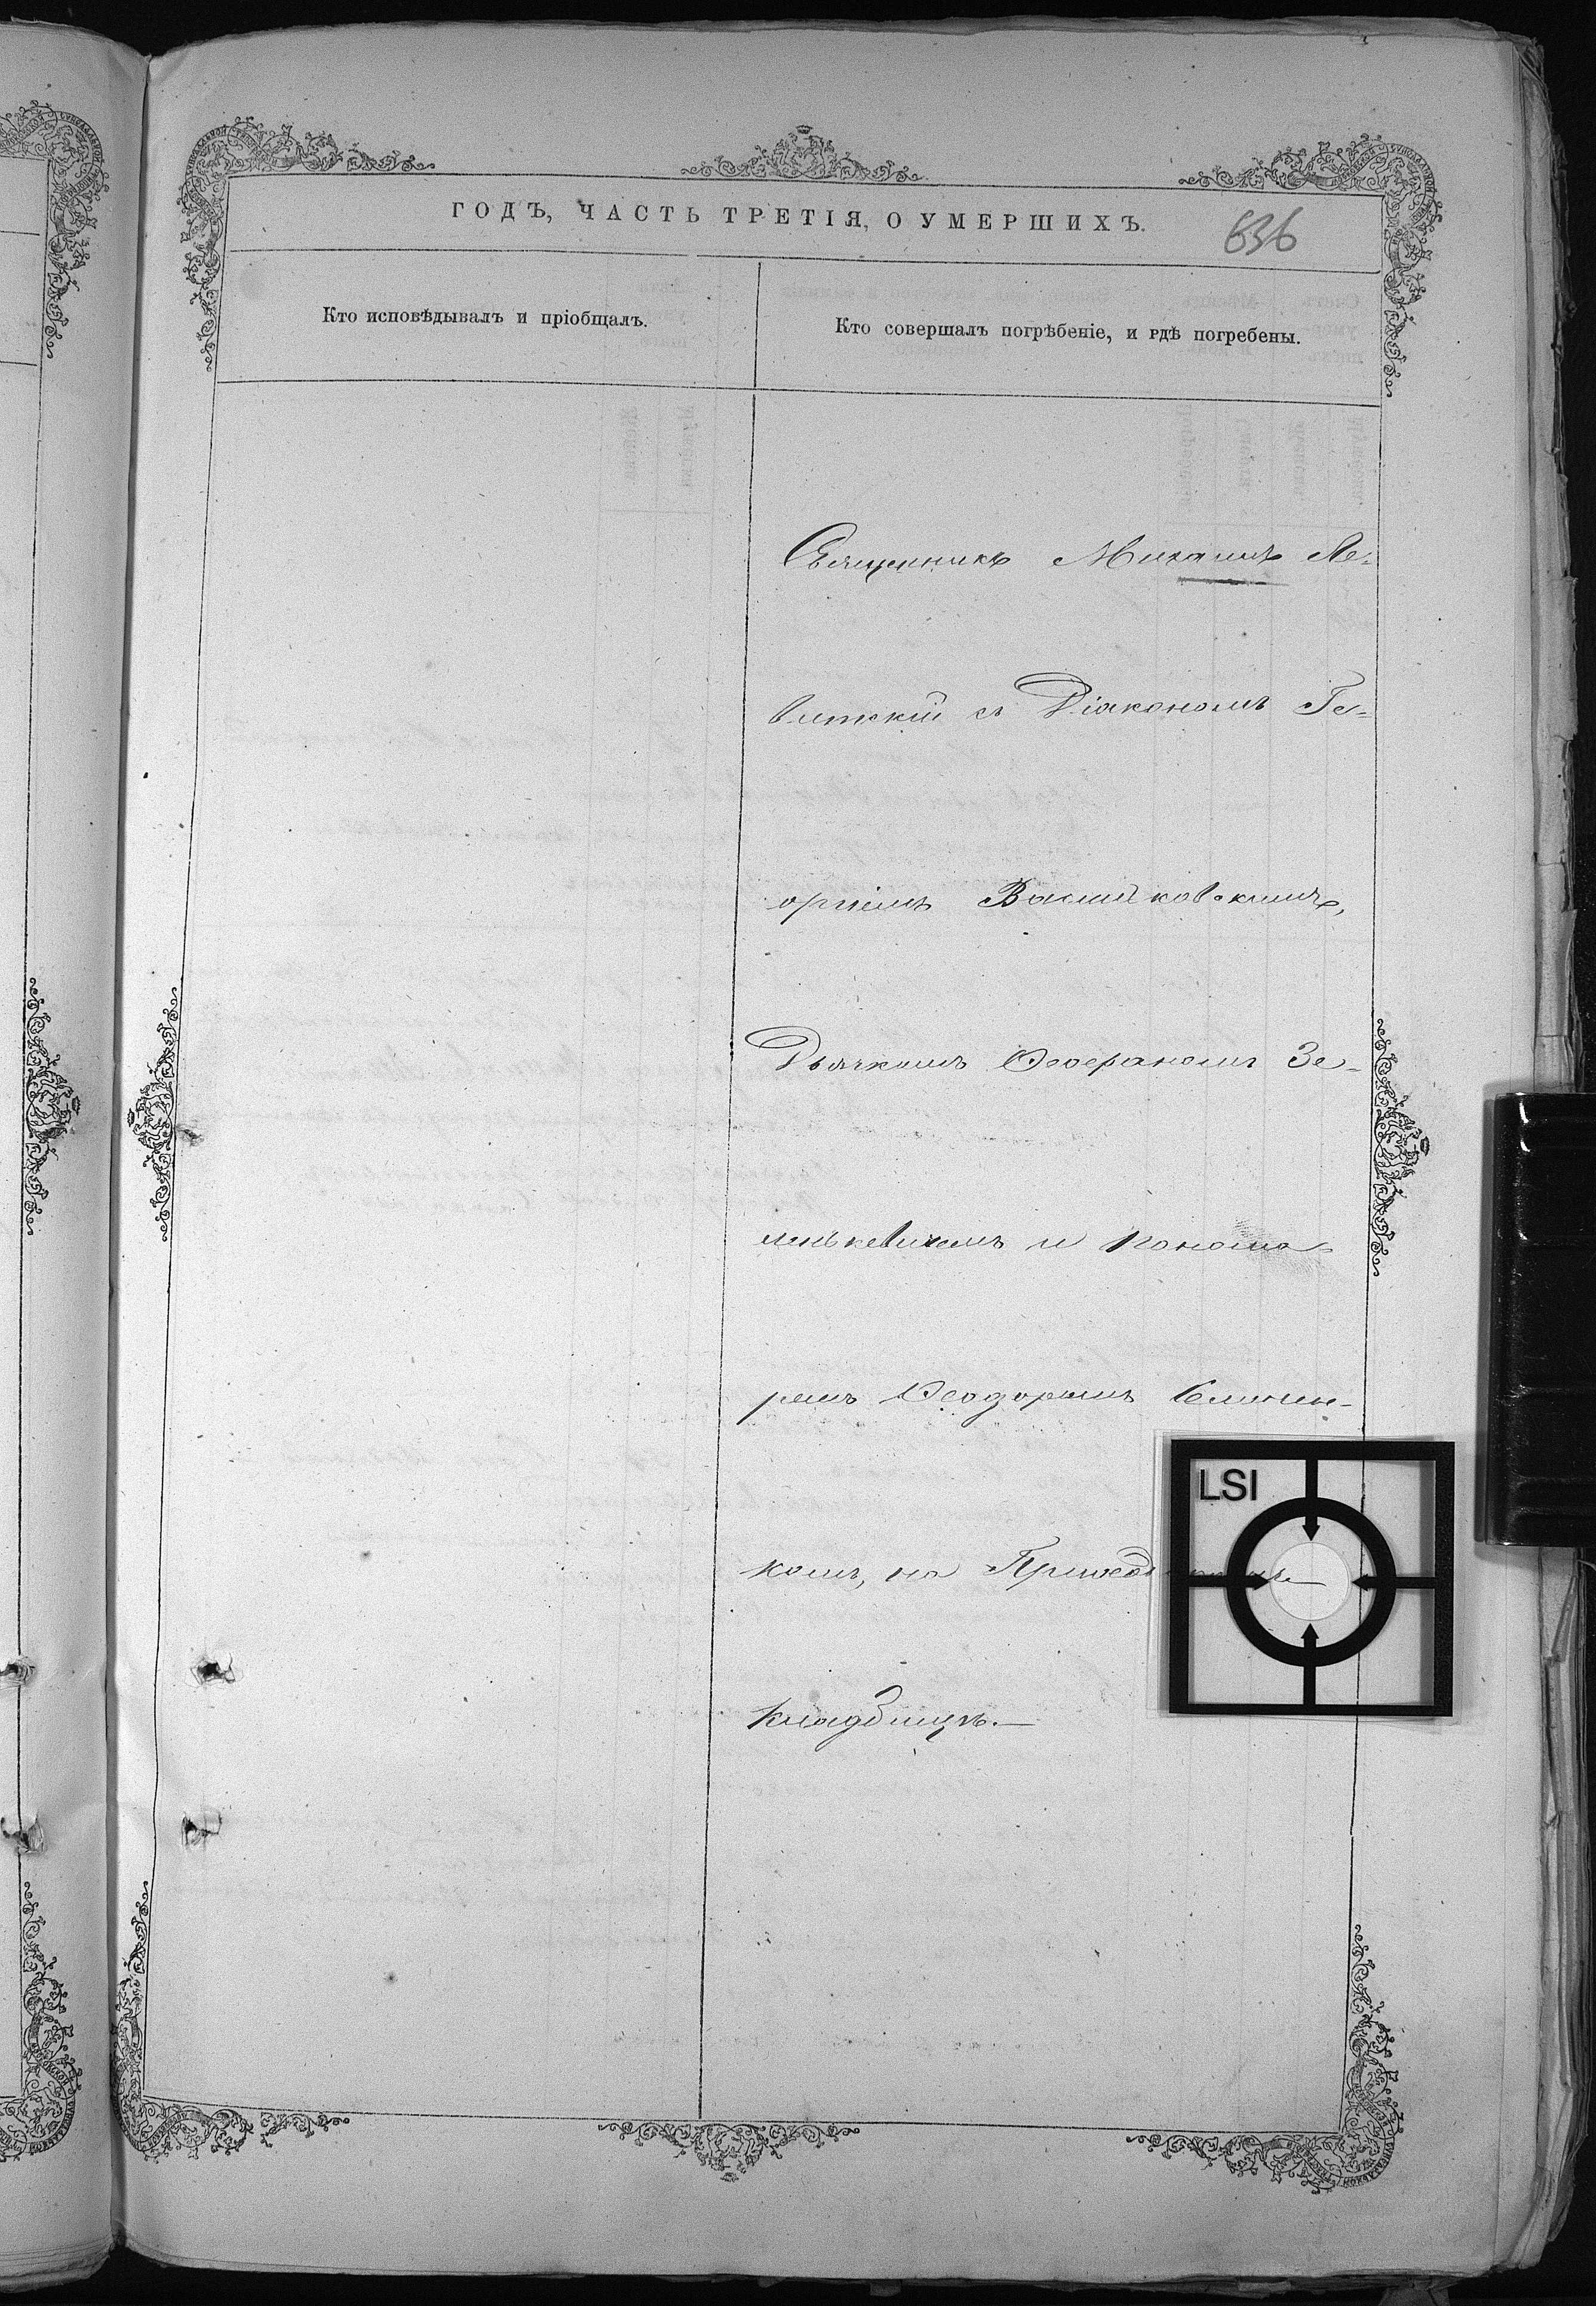 ГОДЪ, ЧАСТЬ ТРЕТІЯ, О УМЕРШИХЪ.
636
Кто исповѣдывалъ и пріобщалъ.
Кто совершалъ погрѣбеніе, и гдѣ погребены.
Священникъ Михаилъ Ле-
витскій съ Діакономъ Ге-
оргіемъ Василковскимъ,
Дьячкомъ Ѳеофаномъ Зе-
леньkевичемъ и Понома-
ремъ Ѳеодоромъ
комъ, на
кладбищѣ.—
LSI